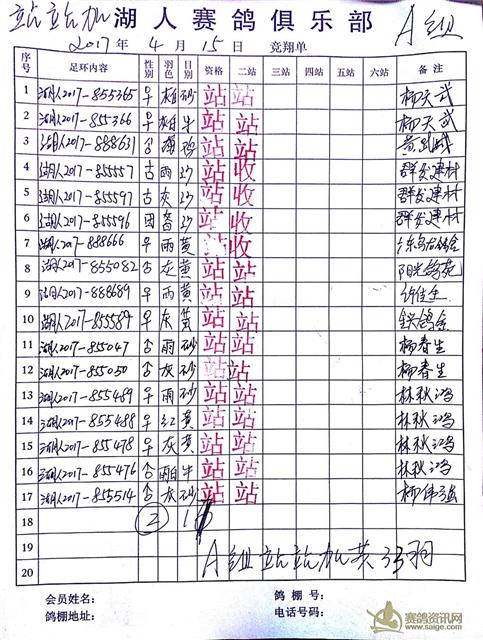 站站加 湖人赛鸽俱乐部 A组
2017年4月15日 竞翔单
序号 足环内容 性别 羽色 目别 资格 二站 三站 四站 五站 六站 备注
1 湖人2017-855365 早 砂 站 站 杨天武
2 湖人2017-855366 早 牛 站 站 杨天武
3 湖人2017-888631 站 站
4 湖人2017-855557 雨 沙 站 收 群发建材
5 湖人2017-855597 灰 沙 站 收 群发建材
6 湖人2017-855596 沙 站 收 群发建材
7 湖人2017-888666 早 雨 黄 站 收
8 湖人2017-855082 灰 黄 站 站 阳光鸽苑
9 湖人2017-888689 早 雨 黄 站 站
10 湖人2017-855589 早 灰 黄 站 站
11 湖人2017-855047 雨 砂 站 站 杨春生
12 湖人2017-855050 灰 砂 站 站 杨春生
13 湖人2017-855489 早 雨 砂 站 站 林秋鸿
14 湖人2017-855488 早 红 黄 站 站 林秋鸿
15 湖人2017-855478 早 灰 黄 站 站 林秋鸿
16 湖人2017-855476 牛 站 站 林秋鸿
17 湖人2017-855514 灰 砂 站 站
18 ②
19 A组站站加共
20
会员姓名: 鸽棚号:
鸽棚地址: 电话号码:
赛鸽资讯网
www.saige.com